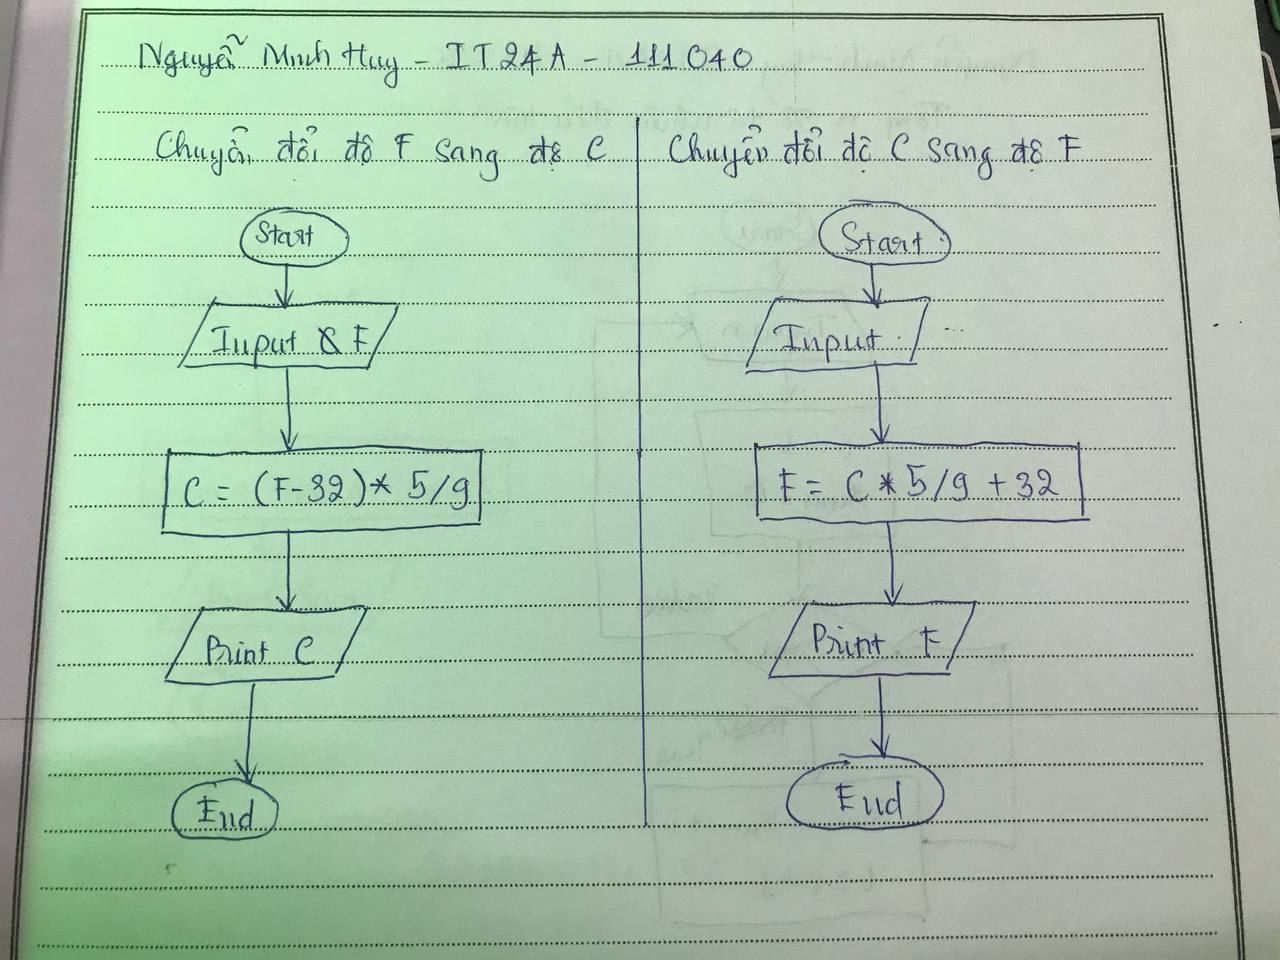 Nguyễn Minh Huy - IT24A - 111040
Chuyển đổi độ F sang độ C
Start
Input F
C = (F-32)* 5/9
Print C
End
Chuyển đổi độ C sang độ F
Start
Input
F = C * 5/9 + 32
Print F
End